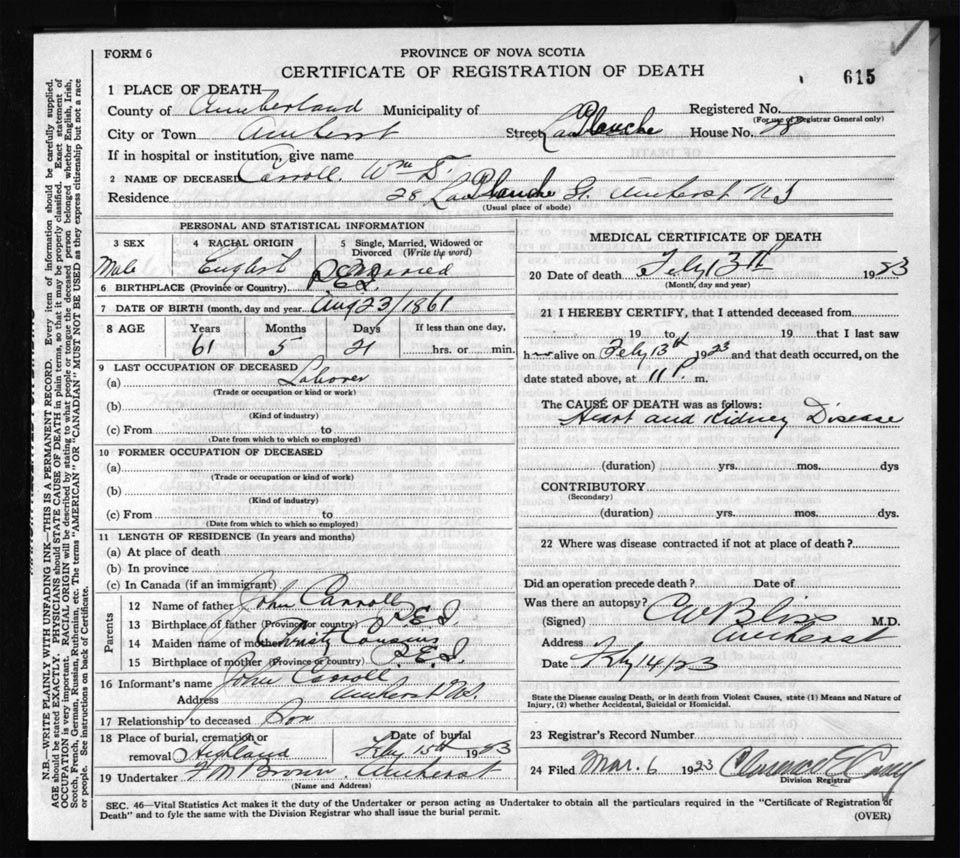 FORM 6
PROVINCE OF NOVA SCOTIA
CERTIFICATE OF REGISTRATION OF DEATH
615
1 PLACE OF DEATH
County of Cumberland Municipality of Registered No.
(For use of Registrar General only)
City or Town Amherst Street La Planche House No. 28
If in hospital or institution, give name
2 NAME OF DECEASED Carroll Wm S.
Residence 28 La Planche St. Amherst N.S
(Usual place of abode)
PERSONAL AND STATISTICAL INFORMATION
3 SEX 4 RACIAL ORIGIN 5 Single, Married, Widowed or Divorced (Write the word)
Male English Married
6 BIRTHPLACE (Province or Country) P.E.I.
7 DATE OF BIRTH (month, day and year) Aug 23/1861
8 AGE Years Months Days If less than one day,
61 5 21 hrs. or min.
9 LAST OCCUPATION OF DECEASED
(a) Laborer
(Trade or occupation or kind or work)
(b)
(Kind of industry)
(c) From to
(Date from which to which so employed)
10 FORMER OCCUPATION OF DECEASED
(a)
(Trade or occupation or kind of work)
(b)
(Kind of industry)
(c) From to
(Date from which to which so employed)
11 LENGTH OF RESIDENCE (In years and months)
(a) At place of death
(b) In province
(c) In Canada (if an immigrant)
Parents
12 Name of father John Carroll
13 Birthplace of father (Province or country) P.E.I
14 Maiden name of mother Christy Cousins
15 Birthplace of mother (Province or country) P.E.I.
16 Informant's name John Carroll
Address Amherst N.S.
17 Relationship to deceased Son
18 Place of burial, cremation or removal Highland Date of burial Feby 15th 1923
19 Undertaker F M Brown. Amherst
(Name and Address)
MEDICAL CERTIFICATE OF DEATH
20 Date of death Feby 13th 1923
(Month, day and year)
21 I HEREBY CERTIFY, that I attended deceased from
19 to 19 that I last saw
h alive on Feby 13th 1923 and that death occurred, on the
date stated above, at 11 P. m.
The CAUSE OF DEATH was as follows:
Heart and Kidney Disease
(duration) yrs. mos. dys
CONTRIBUTORY
(Secondary)
(duration) yrs. mos. dys.
22 Where was disease contracted if not at place of death?
Did an operation precede death? Date of
Was there an autopsy?
(Signed) C W Bliss M.D.
Address Amherst
Date Feby 14/23
State the Disease causing Death, or in death from Violent Causes, state (1) Means and Nature of
Injury, (2) whether Accidental, Suicidal or Homicidal.
23 Registrar's Record Number
24 Filed Mar. 6 1923 Clarence E
Division Registrar
SEC. 46—Vital Statistics Act makes it the duty of the Undertaker or person acting as Undertaker to obtain all the particulars required in the "Certificate of Registration of
Death" and to fyle the same with the Division Registrar who shall issue the burial permit.
(OVER)
N.B.—WRITE PLAINLY WITH UNFADING INK—THIS IS A PERMANENT RECORD. Every item of information should be carefully supplied.
AGE should be stated EXACTLY. PHYSICIANS should STATE CAUSE OF DEATH in plain terms, so that it may be properly classified. Exact statement of
OCCUPATION is very important. RACIAL ORIGIN will be described by stating to what people or tongue the deceased person belonged whether English, Irish,
Scotch, French, German, Russian, Ruthenian, etc. The terms "AMERICAN" or "CANADIAN" MUST NOT BE USED as they express citizenship but not a race
or people. See instructions on back of Certificate.